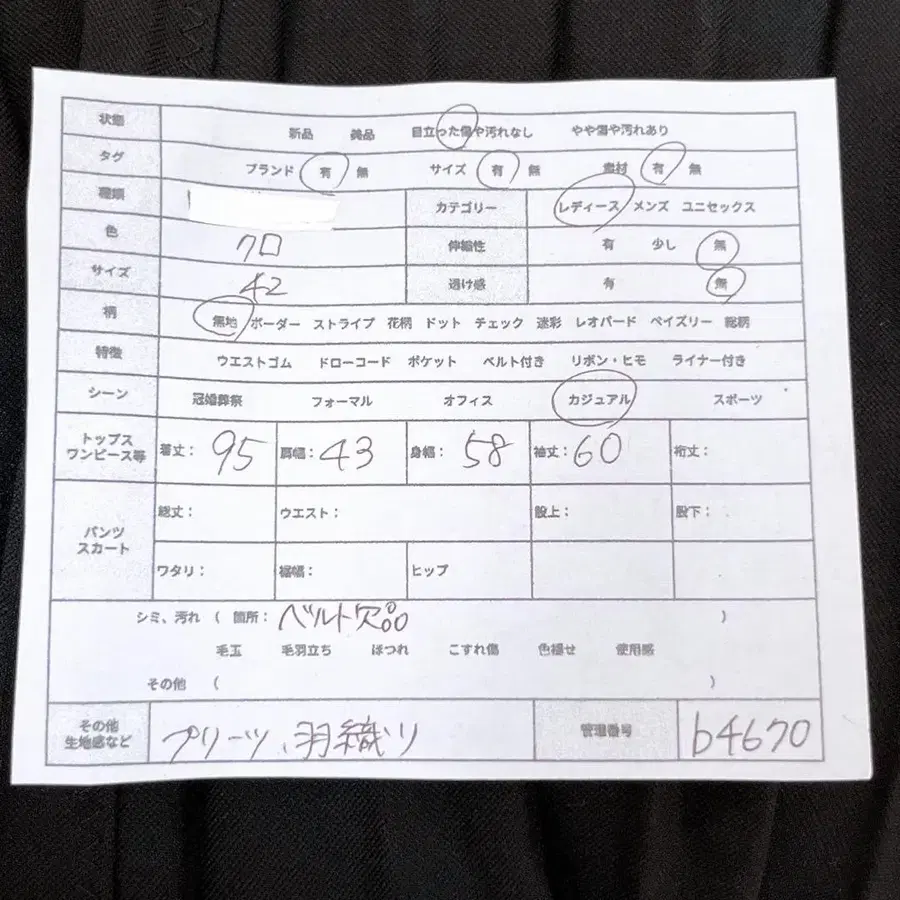 状態 新品 美品 目立った傷や汚れなし やや傷や汚れあり
タグ ブランド 有 無 サイズ 有 無 素材 有 無
種類 カテゴリー レディース メンズ ユニセックス
色 クロ 伸縮性 有 少し 無
サイズ 42 透け感 有 無
柄 無地 ボーダー ストライプ 花柄 ドット チェック 迷彩 レオパード ペイズリー 総柄
特徴 ウエストゴム ドローコード ポケット ベルト付き リボン・ヒモ ライナー付き
シーン 冠婚葬祭 フォーマル オフィス カジュアル スポーツ
トップス
ワンピース等 着丈: 95 肩幅: 43 身幅: 58 袖丈: 60 裄丈:
パンツ
スカート
総丈: ウエスト: 股上: 股下:
ワタリ: 裾幅: ヒップ
シミ、汚れ ( 箇所: ベルト欠品 )
毛玉 毛羽立ち ほつれ こすれ傷 色褪せ 使用感
その他 ( )
その他
生地感など プリーツ、羽織り 管理番号 b4670